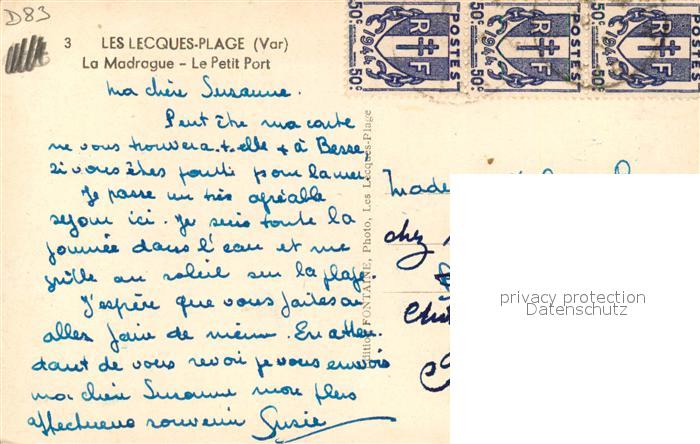 D83
3 LES LECQUES-PLAGE (Var)
La Madrague - Le Petit Port
50c POSTES 50c RF 1944
50c POSTES 50c RF 1944
50c POSTES 50c RF 1944
Ma chère Susanne.
Peut être ma carte
ne vous trouvera t-elle + à Besse,
si vous êtes partie pour la mer.
Je passe un très agréable
séjour ici. Je suis toute la
journée dans l'eau et me
grille au soleil sur la plage.
J'espère que vous faites ou
allez faire de même. En atten
dant de vous revoir je vous envois
ma chère Susanne mon plus
affectueux souvenir Susie
Edition FONTAINE, Photo, Les Lecques-Plage
Made
chez
privacy protection
Datenschutz